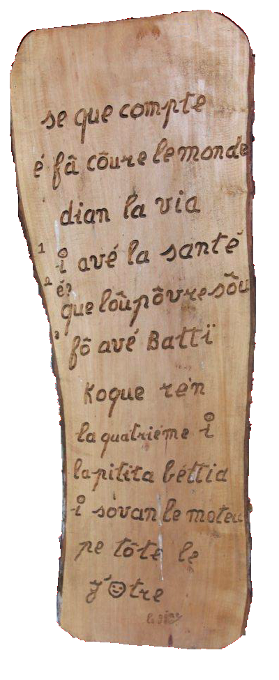 se que compte
é fâ côure le monde
dian la via
1 i avé la santé
2 é? que loûpôvre sôu
3 fô avé Battï
koque ren
la quatriéme i
la pitita béttia
i sovan le moteu
pe tôte le
z'otre